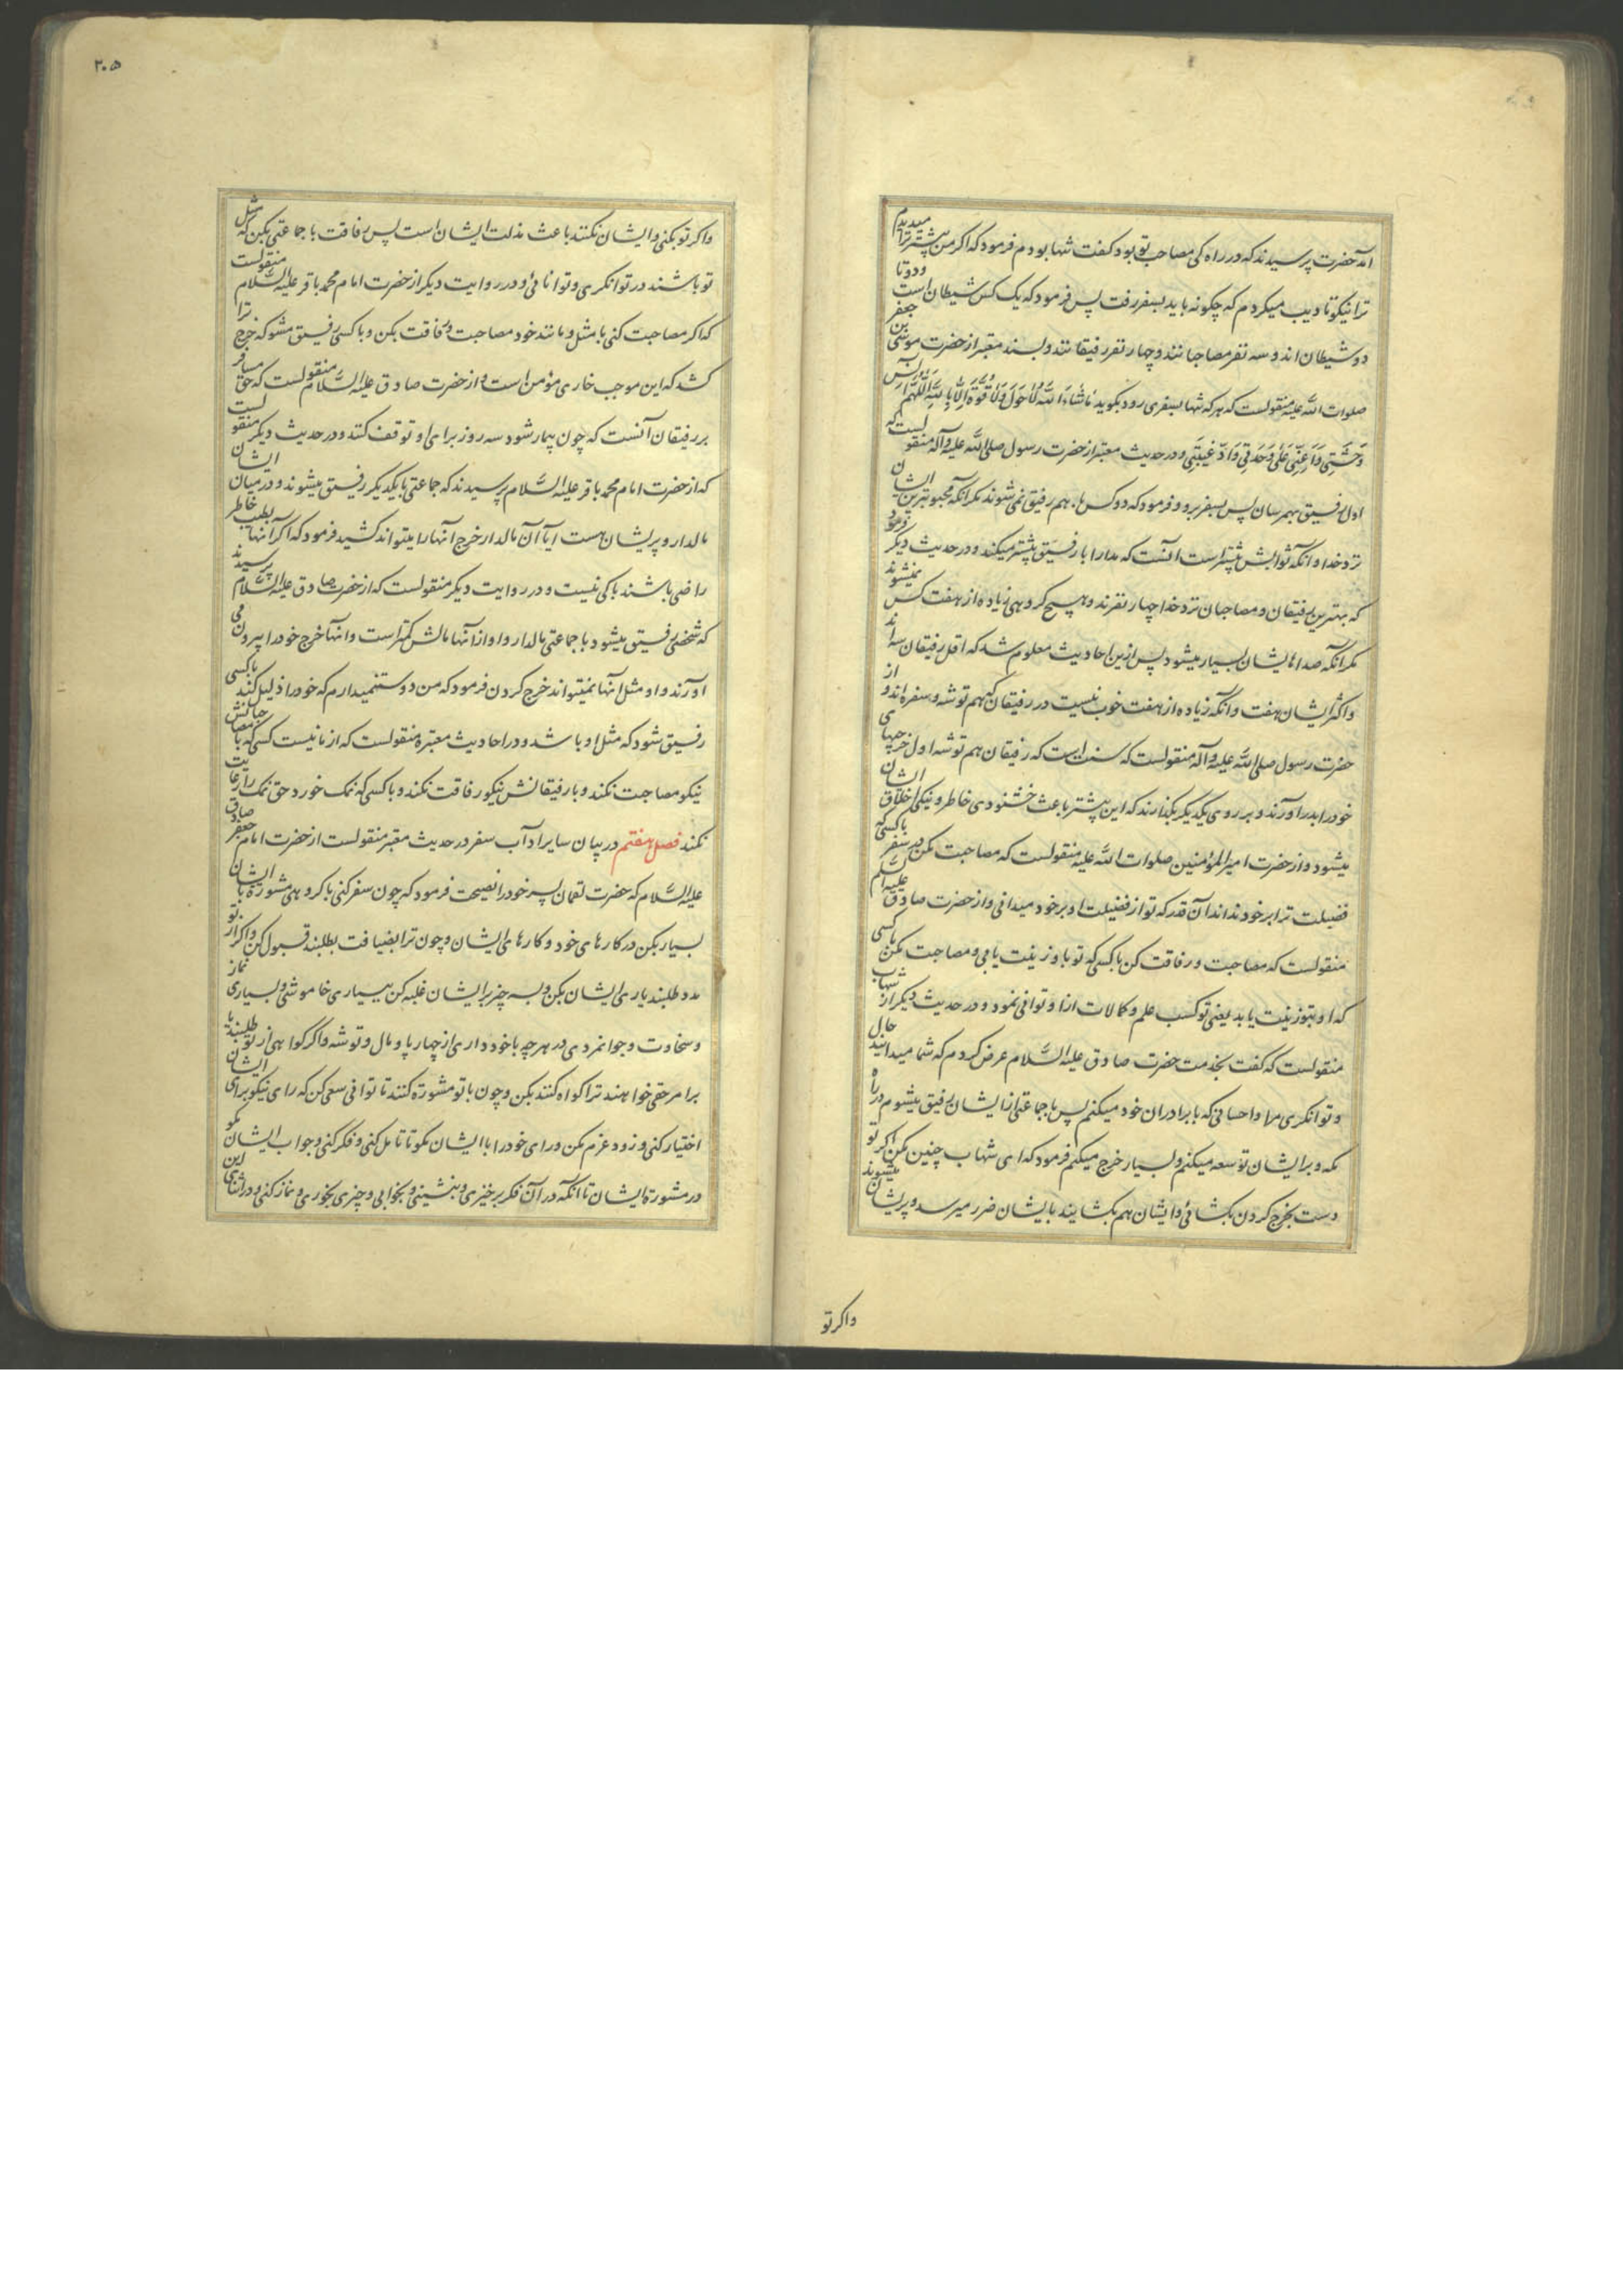 آمد حضرت پرسیدند که در راه کی مصاحب تو بود گفت تنها بودم فرمود که اگر من پیشتر ترا میدیدم
ترا نیکو تادیب میکردم که چگونه باید بسفر رفت پس فرمود که یک کس شیطان است و دو تا
دو شیطان اند و سه نفر مصاحبانند و چهار نفر رفیقانند و بسند معتبر از حضرت موسی بن جعفر
صلوات الله علیه منقولست که هر که تنها بسفری رود بگوید مَا شَاءَ اللّٰهُ لَا حَوْلَ وَلَا قُوَّةَ اِلَّا بِاللّٰهِ اَللّٰهُمَّ آنِسْ
وَحْشَتِی وَاَعِنِّی عَلٰی وَحْدَتِی وَاَدِّ غَیْبَتِی و در حدیث معتبر از حضرت رسول صلی الله علیه وآله منقولست که
اول رفیق بهم رسان پس بسفر برو و فرمود که دو کس با هم رفیق نمی شوند مگر آنکه محبوبترین ایشان
نزد خدا و آنکه ثوابش بیشتر است آنست که مدارا با رفیق بیشتر میکند و در حدیث دیگر فرمود
که بهترین رفیقان و مصاحبان نزد خدا چهار نفرند و هیچ گروهی زیاده از هفت کس نمیشوند
مگر آنکه صداهایشان بسیار میشود پس ازین احادیث معلوم شد که اقل رفیقان سه اند
و اکثر ایشان هفت و آنکه زیاده از هفت خوب نیست در رفیقان که هم توشه و سفره اند و از
حضرت رسول صلی الله علیه وآله منقولست که سنت است که رفیقان هم توشه اول خرجیهای
خود را بدر آورند و بر روی یکدیگر بگذارند که این بیشتر باعث خشنودی خاطر و نیکی اخلاق ایشان
میشود و از حضرت امیر المؤمنین صلوات الله علیه منقولست که مصاحبت مکن در سفر با کسی که
فضیلت ترا بر خود نداند آن قدر که تو از فضیلت او بر خود میدانی و از حضرت صادق علیه السلم
منقولست که مصاحبت و رفاقت کن با کسی که تو باو زینت یابی و مصاحبت مکن با کسی
که او بتو زینت یابد یعنی تو کسب علم و کمالات از او توانی نمود و در حدیث دیگر از شهاب
منقولست که گفت بخدمت حضرت صادق علیه السلام عرض کردم که شما میدانید حال
و توانگری مرا و احسانی که با برادران خود میکنم پس با جماعتی از ایشان رفیق میشوم در راه
مکه و بر ایشان توسعه میکنم و بسیار خرج میکنم فرمود که ای شهاب چنین مکن اگر تو
دست بخرج کردن بکشائی و ایشان هم بکشایند بایشان ضرر میرسد و پریشان میشوند
واکر تو
۲۰۵
واکر تو بکنی و ایشان نکنند باعث مذلت ایشان است پس رفاقت با جماعتی بکن که مثل
تو باشند در توانگری و توانائی و در روایت دیگر از حضرت امام محمد باقر علیه السلام منقولست
که اگر مصاحبت کنی با مثل و مانند خود مصاحبت و رفاقت بکن و با کسی رفیق مشو که خرج ترا
کشد که این موجب خواری مؤمن است و از حضرت صادق علیه السلام منقولست که حق مسافر
بر رفیقان آنست که چون بیمار شود سه روز برای او توقف کنند و در حدیث دیگر منقولست
که از حضرت امام محمد باقر علیه السلام پرسیدند که جماعتی با یکدیگر رفیق میشوند و در میان ایشان
مالدار و پریشان هست آیا آن مالدار خرج آنها را میتواند کشید فرمود که اگر آنها بطیب خاطر
راضی باشند باکی نیست و در روایت دیگر منقولست که از حضرت صادق علیه السلام پرسیدند
که شخصی رفیق میشود با جماعتی مالدار و او از آنها مالش کمتر است و آنها خرج خود را بیرون می
آورند و او مثل آنها نمیتواند خرج کردن فرمود که من دوست نمیدارم که خود را ذلیل کند با کسی
رفیق شود که مثل او باشد و در احادیث معتبره منقولست که از ما نیست کسی که با مصاحبانش
نیکو مصاحبت نکند و با رفیقانش نیکو رفاقت نکند و با کسی که نمک خورد حق نمک را رعایت
نکند فصل هفتم در بیان سایر آداب سفر در حدیث معتبر منقولست از حضرت امام جعفر صادق
علیه السلام که حضرت لقمان پسر خود را نصیحت فرمود که چون سفر کنی با گروهی مشوره با ایشان
بسیار بکن در کارهای خود و کارهای ایشان و چون ترا بضیافت بطلبند قبول کن و اگر از تو
مدد طلبند یاری ایشان بکن و بسه چیز بر ایشان غلبه کن ببسیاری خاموشی و بسیاری نماز
و سخاوت و جوانمردی در هر چه با خود داری از چهارپا و مال و توشه و اگر گواهی از تو طلبند یا
بر امر حقی خواهند ترا گواه کنند بکن و چون با تو مشورة کنند تا توانی سعی کن که رای نیکو برای ایشان
اختیار کنی و زود عزم مکن و رای خود را با ایشان مگو تا تامل کنی و فکر کنی و جواب ایشان مگو
در مشورة ایشان تا آنکه در آن فکر برخیزی و بنشینی و بخوابی و چیزی بخوری و نماز کنی و در اثنای این